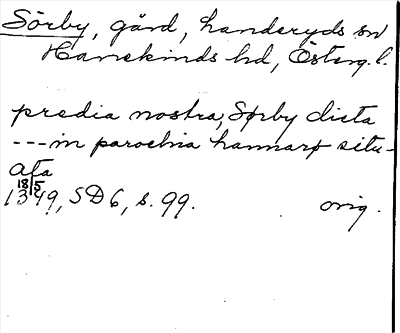 Sörby, gård, Landeryds sn
Hanekinds hd, Österg. l.
predia nostra, Sørby dicta
--- in parochia hannarp situ-
ata
18/5
1349, SD 6, s. 99. orig.